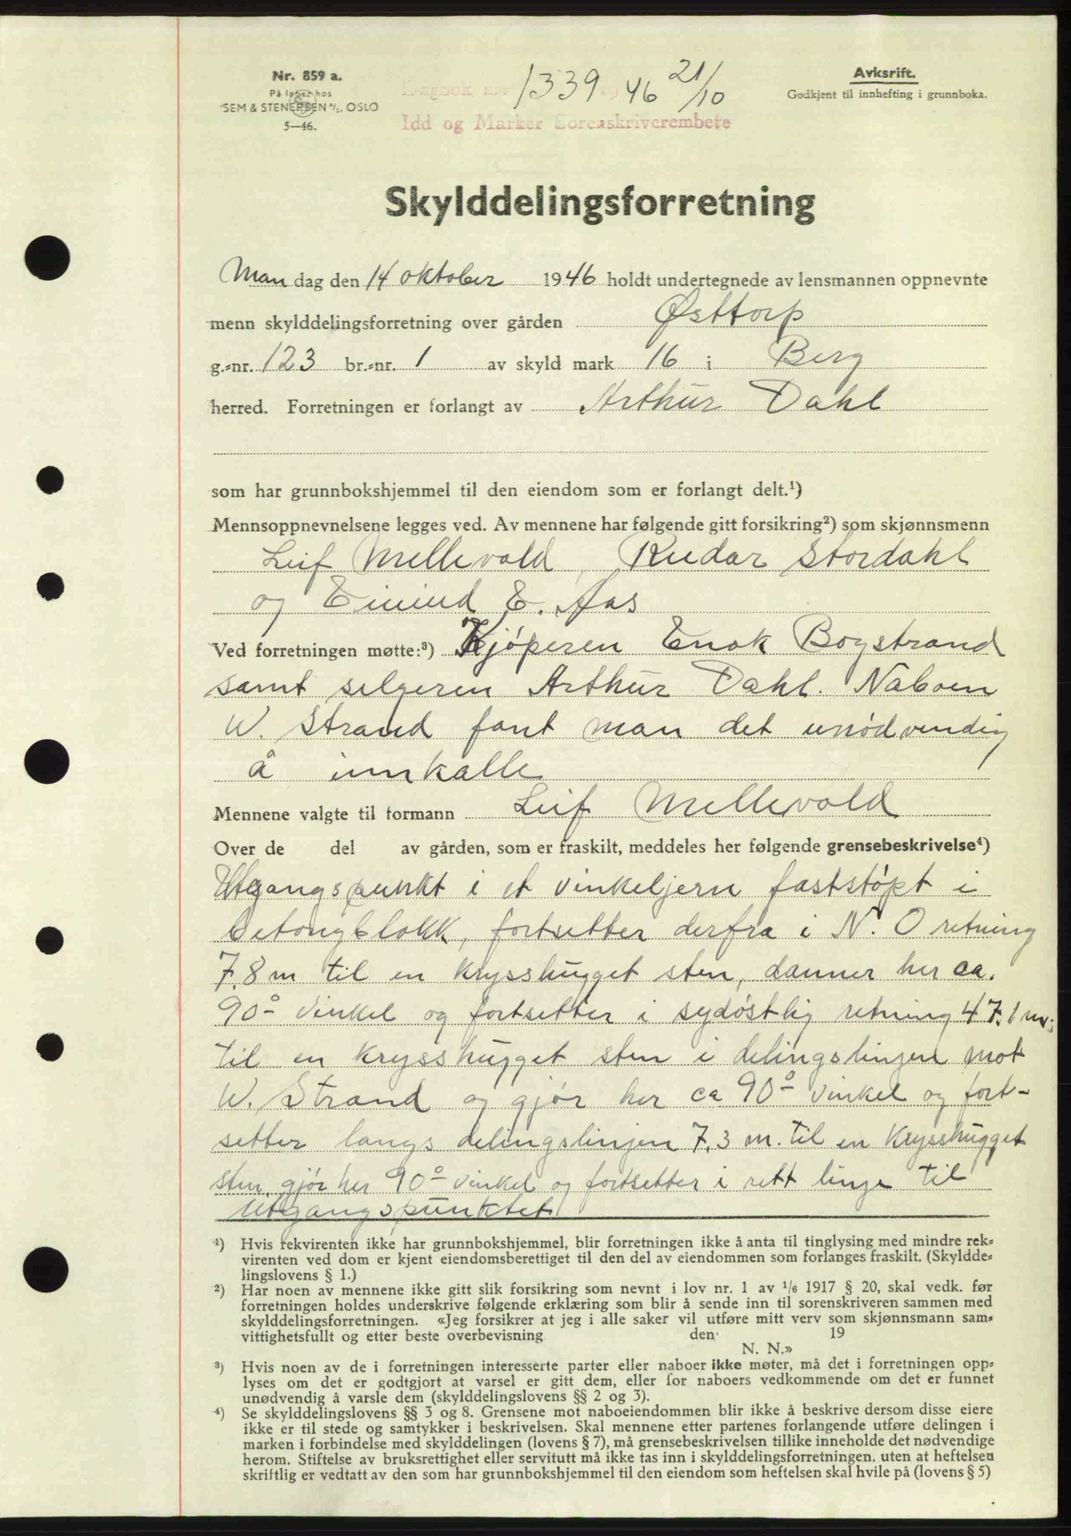 Nr. 859 a.
På lager hos
SEM & STENERSEN A/S. OSLO
5—46.
Dagbok nr. 1339 1946 21/10
Idd og Marker Sorenskriverembete
Avksrift.
Godkjent til innhefting i grunnboka.
Skylddelingsforretning
Man dag den 14 oktober 1946 holdt undertegnede av lensmannen oppnevnte
menn skylddelingsforretning over gården Østtorp
g.-nr. 123 br.-nr. 1 av skyld mark 16 i Berg
herred. Forretningen er forlangt av Arthur Dahl
som har grunnbokshjemmel til den eiendom som er forlangt delt.¹)
Mennsoppnevnelsene legges ved. Av mennene har følgende gitt forsikring²) som skjønnsmenn
Leif Mellevold, Reidar Stordahl
og Eivind E. Aas
Ved forretningen møtte:³) Kjøperen Enok Bogstrand
samt selgeren Arthur Dahl. Naboen
W. Strand fant man det unødvendig
å innkalle
Mennene valgte til formann Leif Mellevold
Over de del av gården, som er fraskilt, meddeles her følgende grensebeskrivelse⁴)
Utgangspunkt i et vinkeljern faststøpt i
betongblokk, fortsetter derfra i N. O retning
7.8 m til en krysshugget sten, danner her ca.
90° vinkel og fortsetter i sydøstlig retning 47.1 m.
til en krysshugget sten i delingslinjen mot
W. Strand og gjør her ca 90° vinkel og fort-
setter langs delingslinjen 7.3 m. til en krysshugget
sten, gjør her 90° vinkel og fortsetter i rett linje til
utgangspunktet
¹) Hvis rekvirenten ikke har grunnbokshjemmel, blir forretningen ikke å anta til tinglysing med mindre rek-
virenten ved dom er kjent eiendomsberettiget til den del av eiendommen som forlanges fraskilt. (Skyldde-
lingslovens § 1.)
²) Har noen av mennene ikke gitt slik forsikring som nevnt i lov nr. 1 av 1/6 1917 § 20, skal vedk. før
forretningen holdes underskrive følgende erklæring som blir å sende inn til sorenskriveren sammen med
skylddelingsforretningen. «Jeg forsikrer at jeg i alle saker vil utføre mitt verv som skjønnsmann sam-
vittighetsfullt og etter beste overbevisning den 19
N. N.»
³) Hvis noen av de i forretningen interesserte parter eller naboer ikke møter, må det i forretningen opp-
lyses om det er godtgjort at varsel er gitt dem, eller for naboers vedkommende om det er funnet
unødvendig å varsle dem (skylddelingslovens §§ 2 og 3).
⁴) Se skylddelingslovens §§ 3 og 8. Grensene mot naboeiendommen blir ikke å beskrive dersom disse eiere
ikke er til stede og samtykker i beskrivelsen. Skal mennene etter partenes forlangende utføre delingen i
marken i forbindelse med skylddelingen (lovens § 7), må grensebeskrivelsen tillike inneholde det nødvendige
herom. Stiftelse av bruksrettighet eller servitutt må ikke tas inn i skylddelingsforretningen. uten at heftelsen
skriftlig er vedtatt av den som har grunnbokshjemmel til den eiendom som heftelsen skal hvile på (lovens § 5)